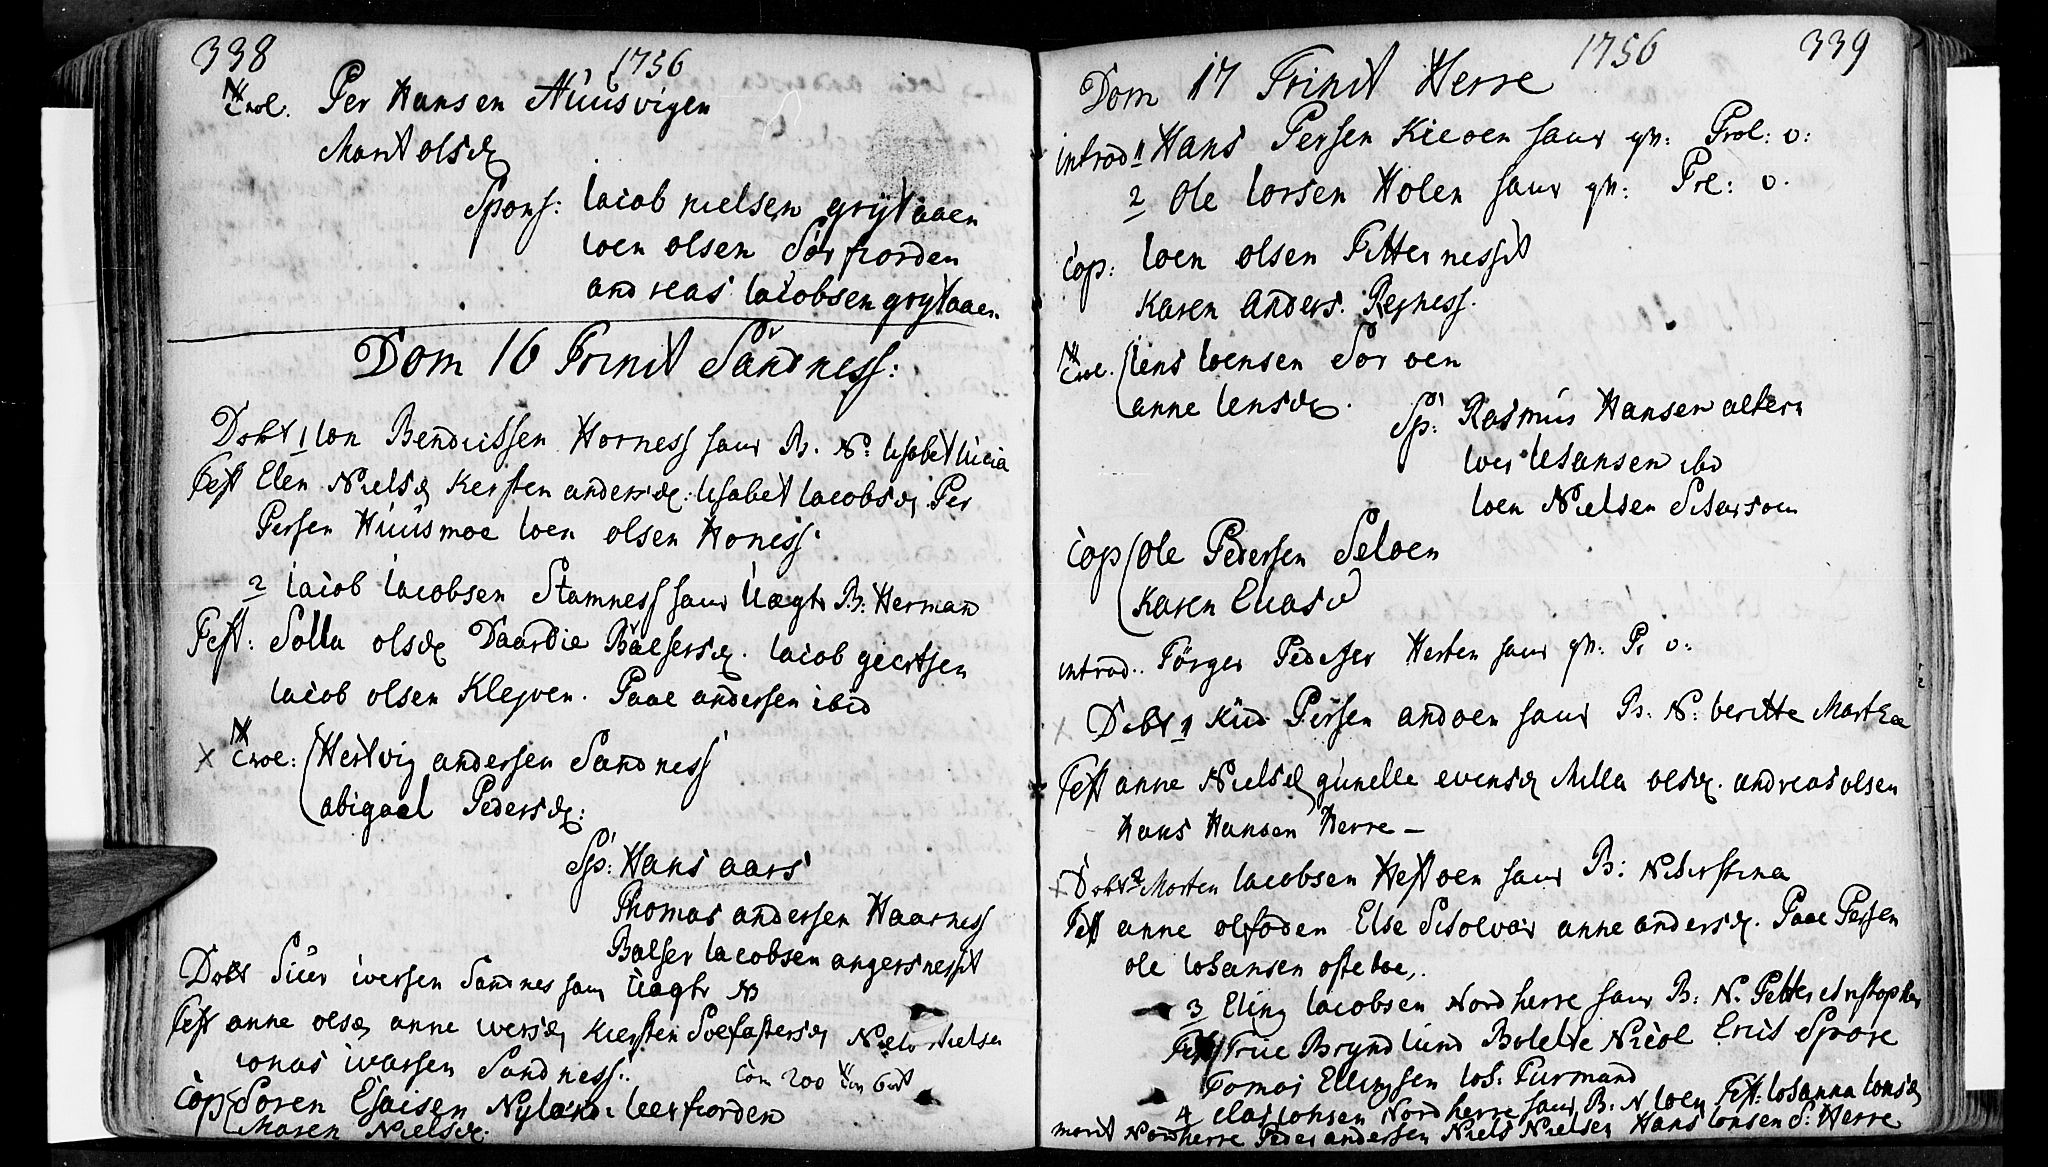 338
1756
Trol. Per Hansen Huusvigen
Marit olsdr
Spons: Iacob nielsen grytaaen
Ioen olsen Sørfiorden
andreas Iacobsen grytaaen
Dom 16 Trinit Sandness:
Døbt 1 Ion Bendicssen Horness samt B. N: Lisabet Lucia
Test Elen Nielsd Kersten andersdr: Lisabet Iacobsdr Per
Persen Huusmoe Ioen olsen Honess
2 Iacob Iacobsen Stamness samt Uægte B: Herman
Test: Solla olsdr Daardie Balsersdr. Iacob geertsen
Iacob olsen Klejven. Paae andersen ibid
Trol: Hertvig andersen Sandness
abigael Pedersdr:
Sp: Hans aars
Thomas andersen Haarness
Balser Iacobsen angersnessit
Døbt Siur iversen Sandnes samt Uægte N
Test anne olsdr anne iversdr Kiersten Solfastersdr Niels Nielsen
Ionas ivarsen Sandness.
Com 200
Cop Soren Esaisen Nyland Leerfiorden
Maren Nielsdr:
1756
339
Dom 17 Trinit Herre
introd 1 Hans Persen Kieoen samt qv: Prol: v:
2 Ole Iorsen Holen samt qv: Prl: v.
Cop: Ioen olsen Fitternessit
Karen anders. Reyness.
Trol. Iens Ioensen Sør oen
anne Iensdr.
Sp: Rasmus Hansen altern
ibd
Ioen Nielsen
Cop Ole Pedersen Seloen
Karen Eliasd
introd: Torger Pedersen Herten samt qv: Pr v:
Døbt 1 Knud Persen andoen samt B: N: beritte Martha
Test anne Nielsdr gunelle evensdr Milla olsdr. andreas olsen
Hans Hansen Herre
Døbt 2 Morten Iacobsen Hestoen samt B: N: Kirstina
Test anne olsdr Else anne andersdr. Paae Persen
ole Iohansen
3 Eling Iacobsen Nordherre samt B: N. Petter Christopher
Test Frue Bryndlund Bolette Nicol Erics
Tomas Ellingsen Ios. Furmand
4 Clas Iohnsen Nordherre samt B: N Ioen Test: Iohanna Ionsdr
marit Nordherre Peder andersen Niels Nielsen Hans Ionsen S: Herre